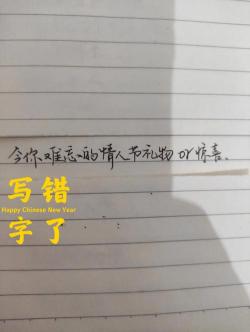 今你难忘的情人节礼物 or 惊喜.
写错
Happy Chinese New Year
字了